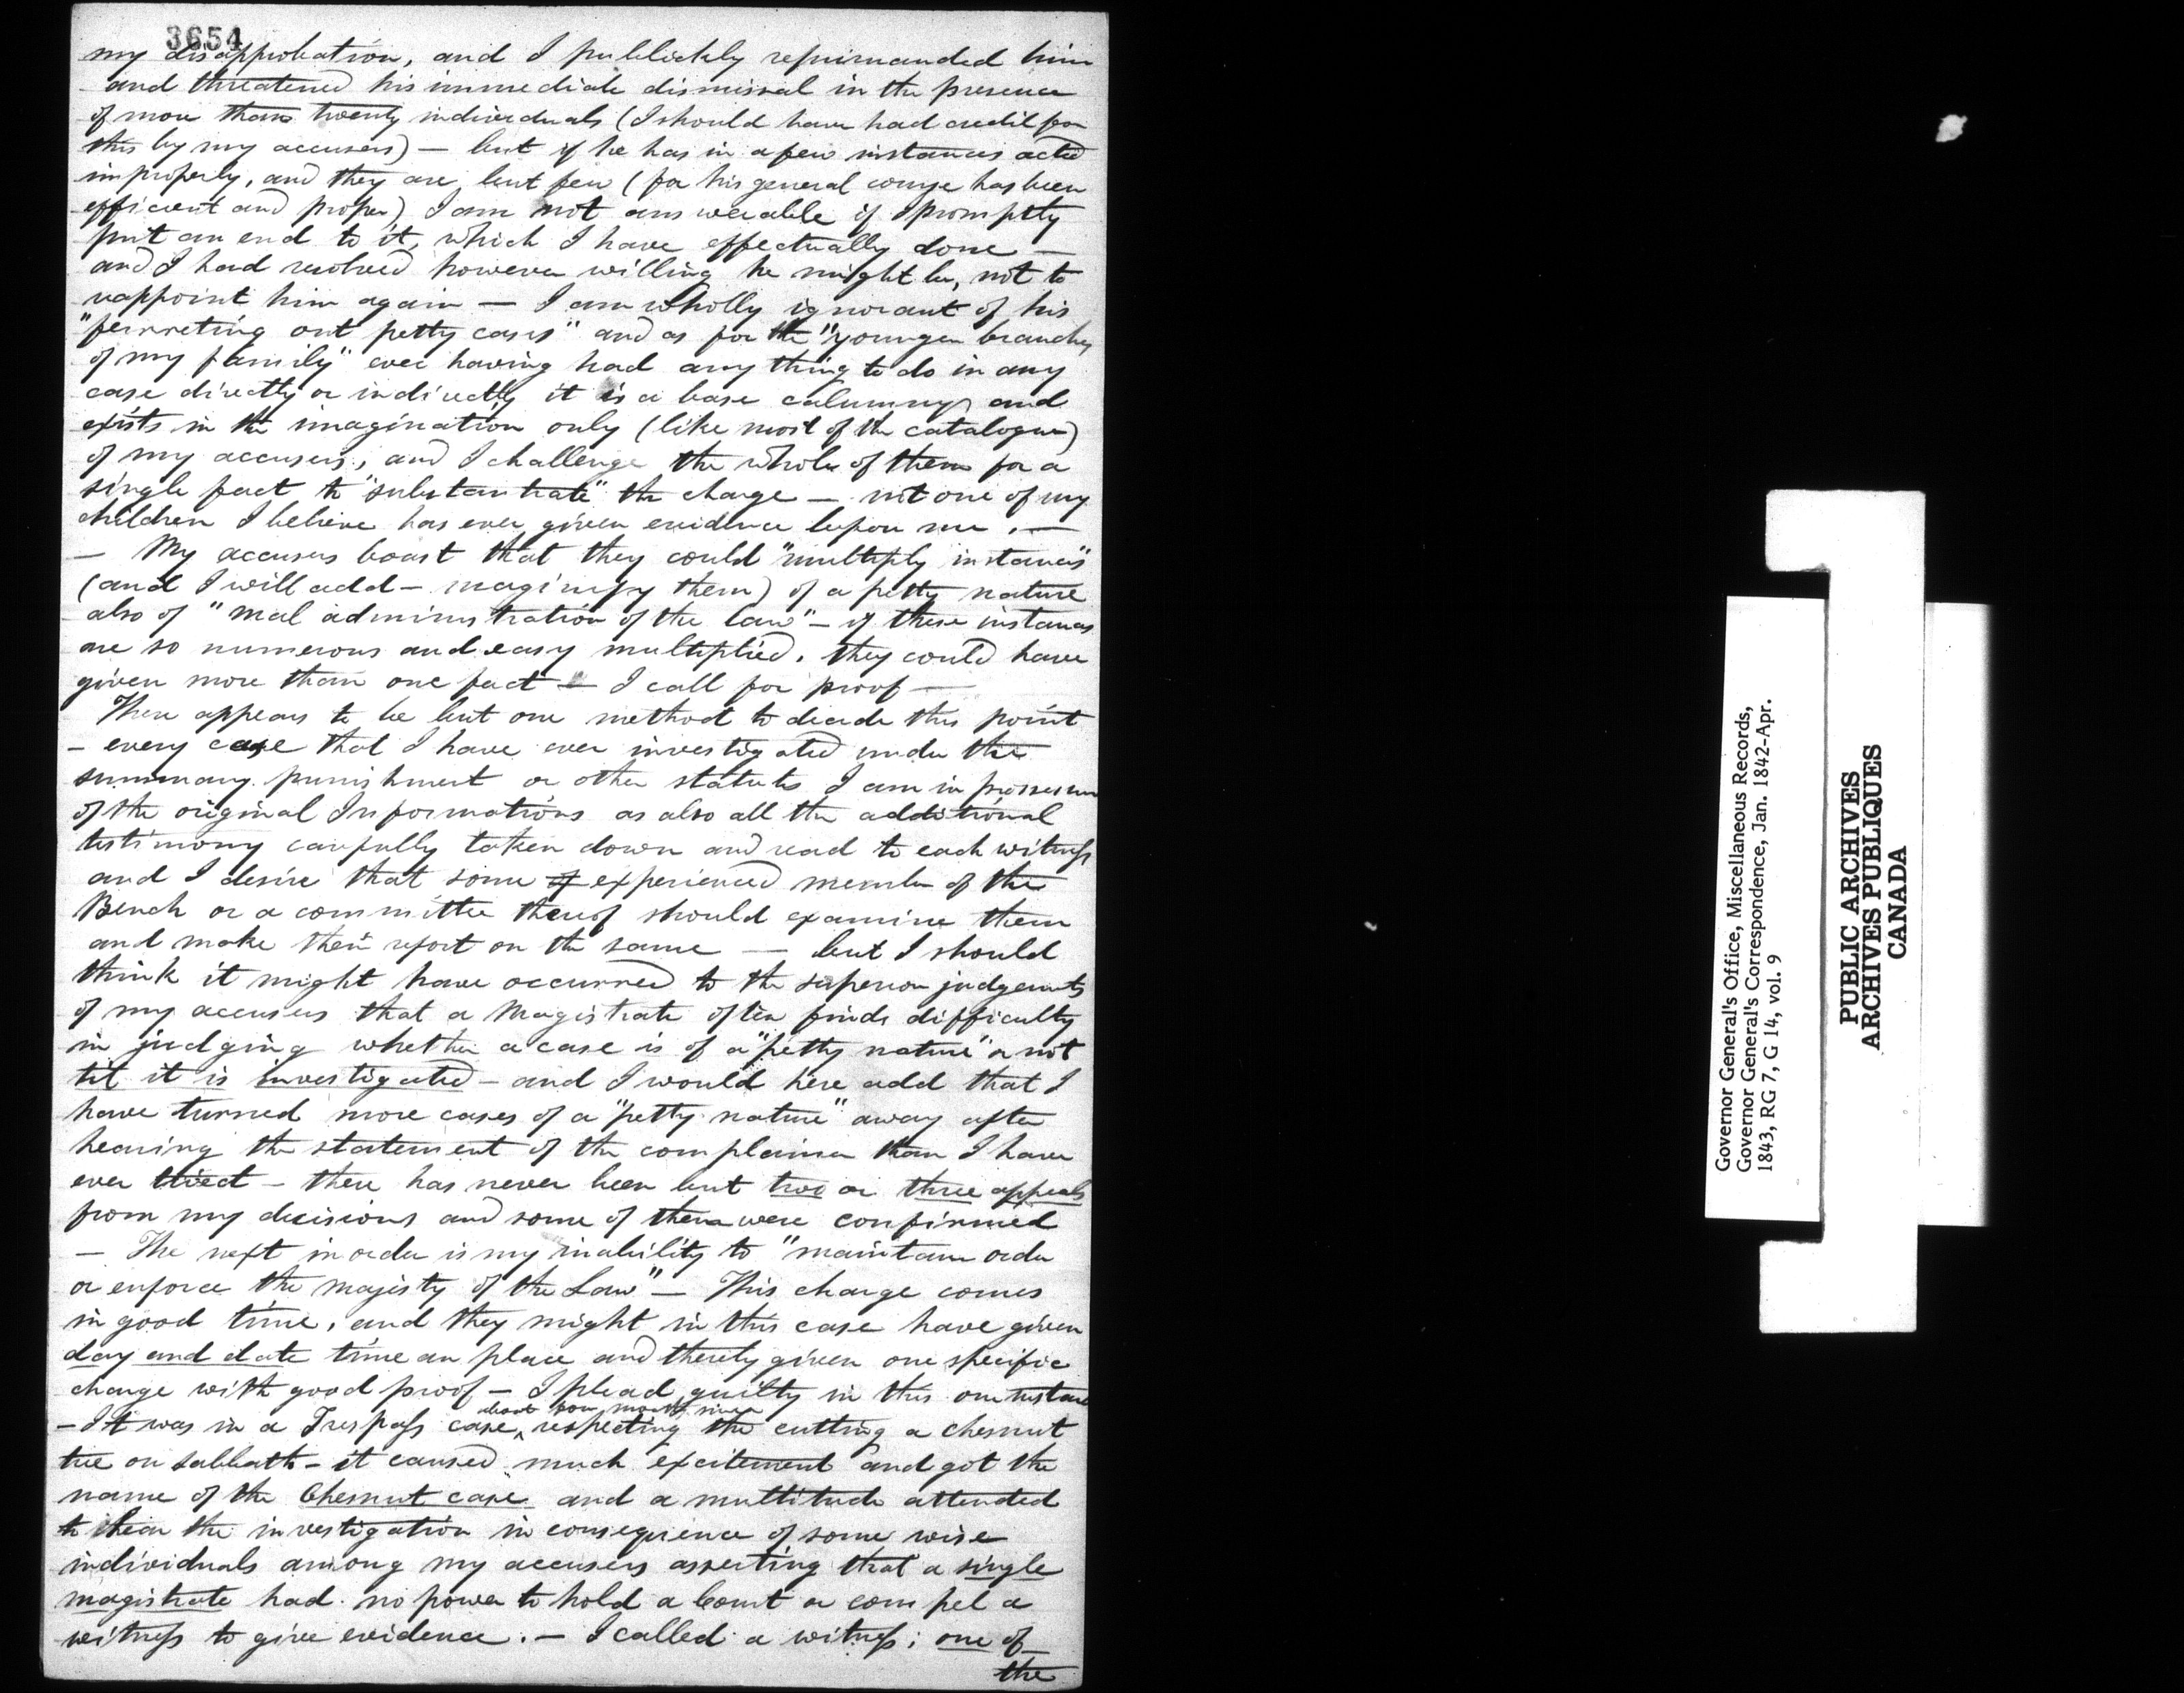 3654
my disapprobation, and I publickly reprimanded him
and threatened his immediate dismissal in the presence
of more than twenty individuals (I should have had credit for
this by my accusers) — but if he has in a few instances acted
improperly, and they are but few (for his general course has been
efficient and proper) I am not answerable if I promptly
put an end to it, which I have effectually done —
and I had resolved however willing he might be, not to
reappoint him again — I am wholly ignorant of his
"ferrreting out petty cases" and as for the "younger branches
of my family" ever having had any thing to do in any
case directly or indirectly it is a base calumny and
exists in the imagination only (like most of the catalogue)
of my accusers, and I challenge the whole of them for a
single fact to "substantiate" the charge — not one of my
children I believe has ever given evidence before me. —
— My accusers boast that they could "multiply instances"
(and I will add — maginify them) of a petty nature
also of "mal administration of the law" — if these instances
are so numerous and easy multiplied, they could have
given more than one fact — I call for proof —
There appears to be but one method to decide this point
— every case that I have ever investigated under the
summary punishment or other statutes I am in possession
of the original Informations as also all the additional
testimony carefully taken down and read to each witness
and I desire that some of experienced member of the
Bench or a committee thereof should examine them
and make their report on the same — but I should
think it might have occurred to the superior judgements
of my accusers that a Magistrate often finds difficulty
in judging whether a case is of a "petty nature" or not
til it is investigated — and I would here add that I
have turned more cases of a "petty nature" away after
hearing the statement of the complainer than I have
ever tried — there has never been but two or three appeals
from my decisions and some of them were confirmed
— The next in order is my inability to "maintain order
or enforce the majesty of the Law" — This charge comes
in good time, and they might in this case have given
day and date time an place and thereby given one specific
charge with good proof — I plead guilty in this one instance
about four months since
— It was in a Trespass case, respecting the cutting a chesnut
tree on sabbath — it caused much excitement and got the
name of the Chesnut case and a multitude attended
to hear the investigation in consequence of some wise
individuals among my accusers asserting that a single
magistrate had no power to hold a Court or compel a
witness to give evidence. — I called a witness; one of
the
Governor General's Office, Miscellaneous Records,
Governor General's Correspondence, Jan. 1842-Apr.
1843, RG 7, G 14, vol. 9
PUBLIC ARCHIVES
ARCHIVES PUBLIQUES
CANADA